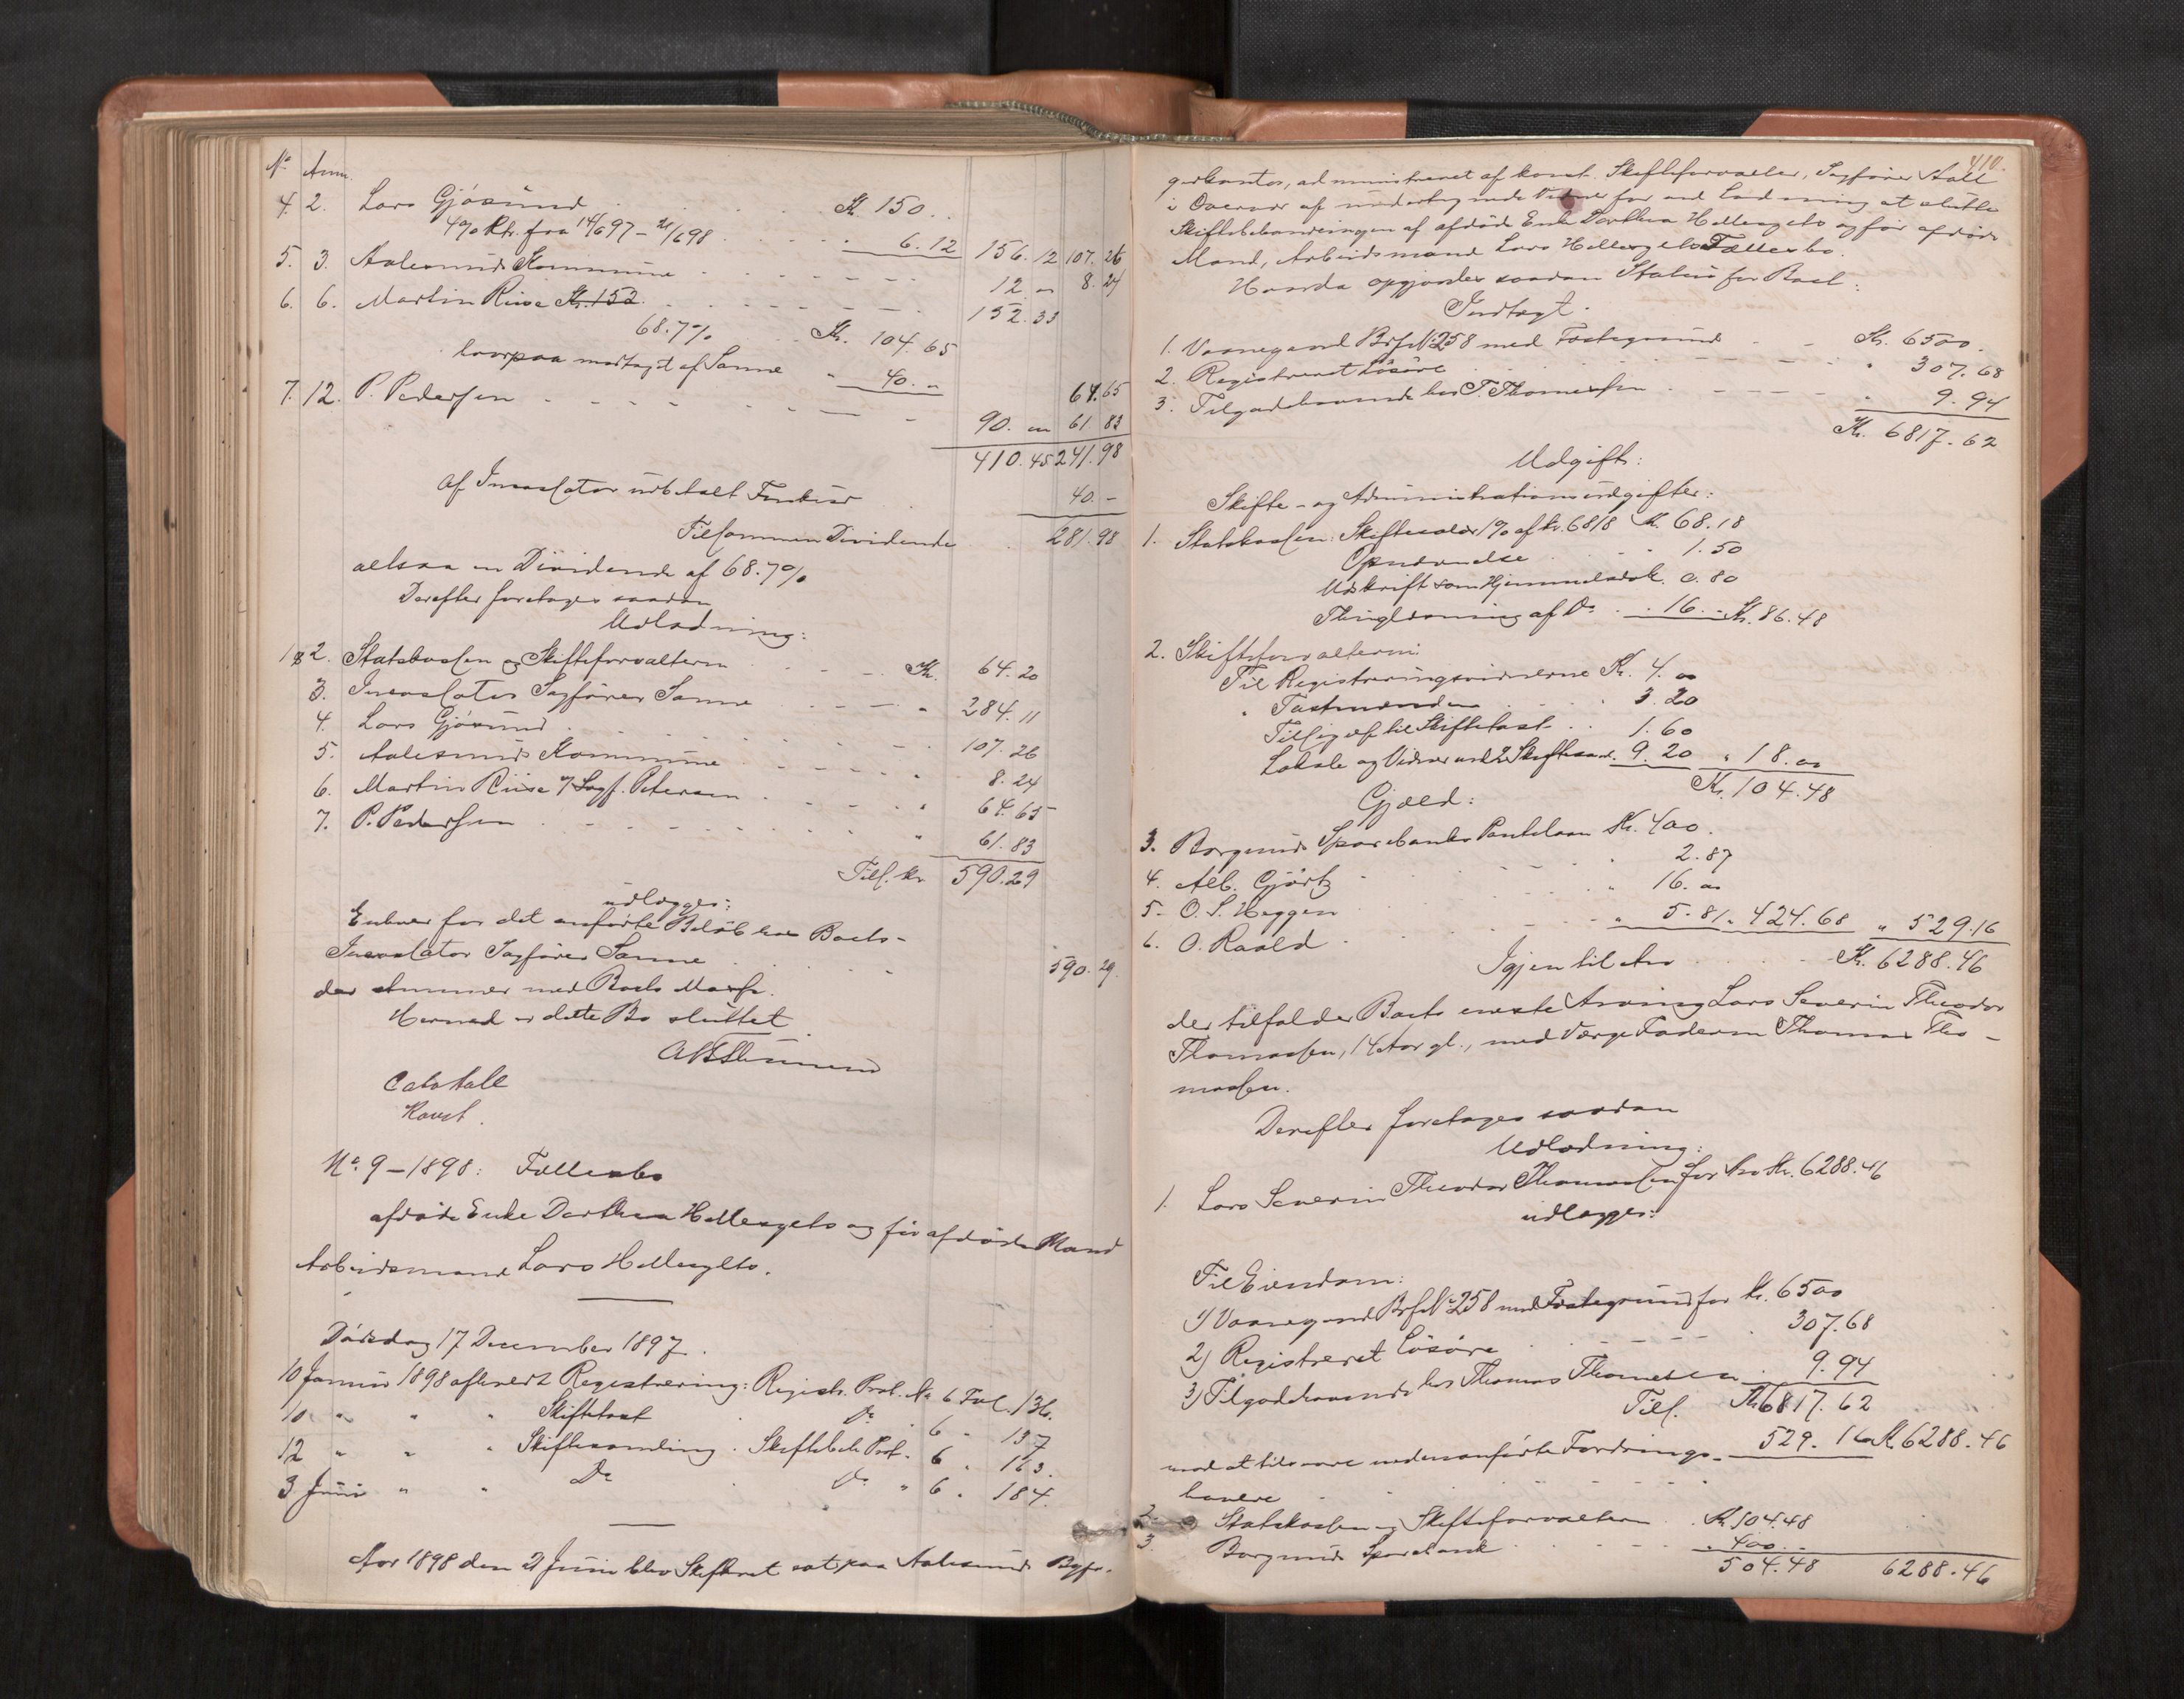 No Anm.
4. 2. Lars Gjøsund . . Kr. 150. .
4% Rt. fra 14/6 97 - 21/6 98 . . . . . 6.12 156.12 107.26
5. 3. Aalesunds Kommune . . . . 12 „ 8.24
6. 6. Martin Riise Kr. 152. . . . . 152.33
68.7% . . Kr. 104.65
hvorpaa modtaget af Sanne „ 40. „ 64.65
7. 12. P. Pedersen . . . . 90. „ 61 83
410.45 241.98
Af Incassator udbetalt 40.-
Tilsammen Dividende . 281.98
altsaa en Dividende af 68.7%
Derefter foretages saadan
Udlodning:
1 & 2. Statskassen og Skifteforvalteren . . . Kr. 64.20
3. Incassator Sagfører Sanne . . . „ 284.11
4. Lars Gjøsund . . . . 107.26
5. Aalesunds Kommune . . . . 8.24
6. Martin Riise v/ Sagf. Petersen . . . . 64.65
7. P. Pedersen . . . . „ 61.83
Tils. kr. 590.29
udlægges:
Enhver for det anførte Beløb hos Boets
Incassator Sagfører Sanne . . . . 590.29.
der stemmer med Boets Masse.
Hermed er dette Bo sluttet.
Cato Aall
Konst.
No. 9 - 1898: Fællesbo
afdøde Enke Dorthea Hellesylts og før afdøde Mand
Arbeidsmand Lars Hellesylts.
Dødsdag 17 December 1897.
10 Januar 1898 afholdt Registrering: Registr. Prot. No 6 Fol. 136.
10 „ „ „ Skiftetaxt Do . 6 „ 137
12 „ „ „ Skiftesamling . Skiftebeh. Prot. 6 „ 163.
3 Juni „ „ Do Do „ 6 „ 184.
Aar 1898 den 21 Juni blev Skifteret sat paa Aalesunds Byfo-
410.
gedkontor, administreret af konst. Skifteforvalter, Sagfører Aall
i Overvær af undertegnede Vidner for ved Lodning at slutte
Skiftebehandlingen af afdøde Enke Dorthea Hellesylts og før afdøde
Mand, Arbeidsmand Lars Hellesylts Fællesbo.
Herunder opgjordes saadan Status for Boet:
Indtægt.
1. Vaanegaard Brf. No 258 med Fæstegrund . . Kr. 6500.
2. Registreret Løsøre . . . . „ 307.68
3. Tilgodehavende hos T. Thomassen . . . . „ 9.94
Kr. 6817.62
Udgift:
Skifte- og Administrationsudgifter:
1. Statskassen: Skiftesalær 1% af kr. 6818 Kr. 68.18
Opnævnelse . . . 1.50
Udskrift som Hjemmelsdok. 0.80
Thinglæsning af Do . . 16. - Kr. 86.48
2. Skifteforvalteren:
Til Registreringsvidnerne Kr. 4. 00
„ Taxtmændene . . . 3.20
Tillæg til Skiftetaxt . . 1.60
Lokale og Vidner ved 2 Skiftesaml. 9.20 „ 18.00
Kr. 104.48
Gjæld:
3. Borgunds Sparebanks Pantelaan Kr. 400.
4. Alb. Gjørtz . . . 2.87
5. O. S. Heggen . . . „ 16. 00
6. O. Raald . . . „ 5.81 „ 424.68 „ 529.16
Igjen til Arv . . . Kr. 6288.46
der tilfalder Boets eneste Arving Lars Severin Theodor
Thomassen, 14 Aar gl., med Værge Faderen Thomas Tho-
massen.
Derefter foretages saadan
Udlodning:
1. Lars Severin Theodor Thomassen for Arv Kr. 6288.46
udlægges:
Til Eiendom:
1) Vaanegaard Brf. No 258 med Fæstegrund for Kr. 6500
2) Registreret Løsøre . . . . . 307.68
3) Tilgodehavende hos Thomas Thomassen . 9.94
Tils. Kr. 6817.62
mod at tilsvare nedenanførte Fordrings- 529.16 Kr. 6288.46
havere
2. Statskassen og Skifteforvalteren . Kr. 104.48
3. Borgunds Sparebank . . . . „ 400. -
504.48 6288.46